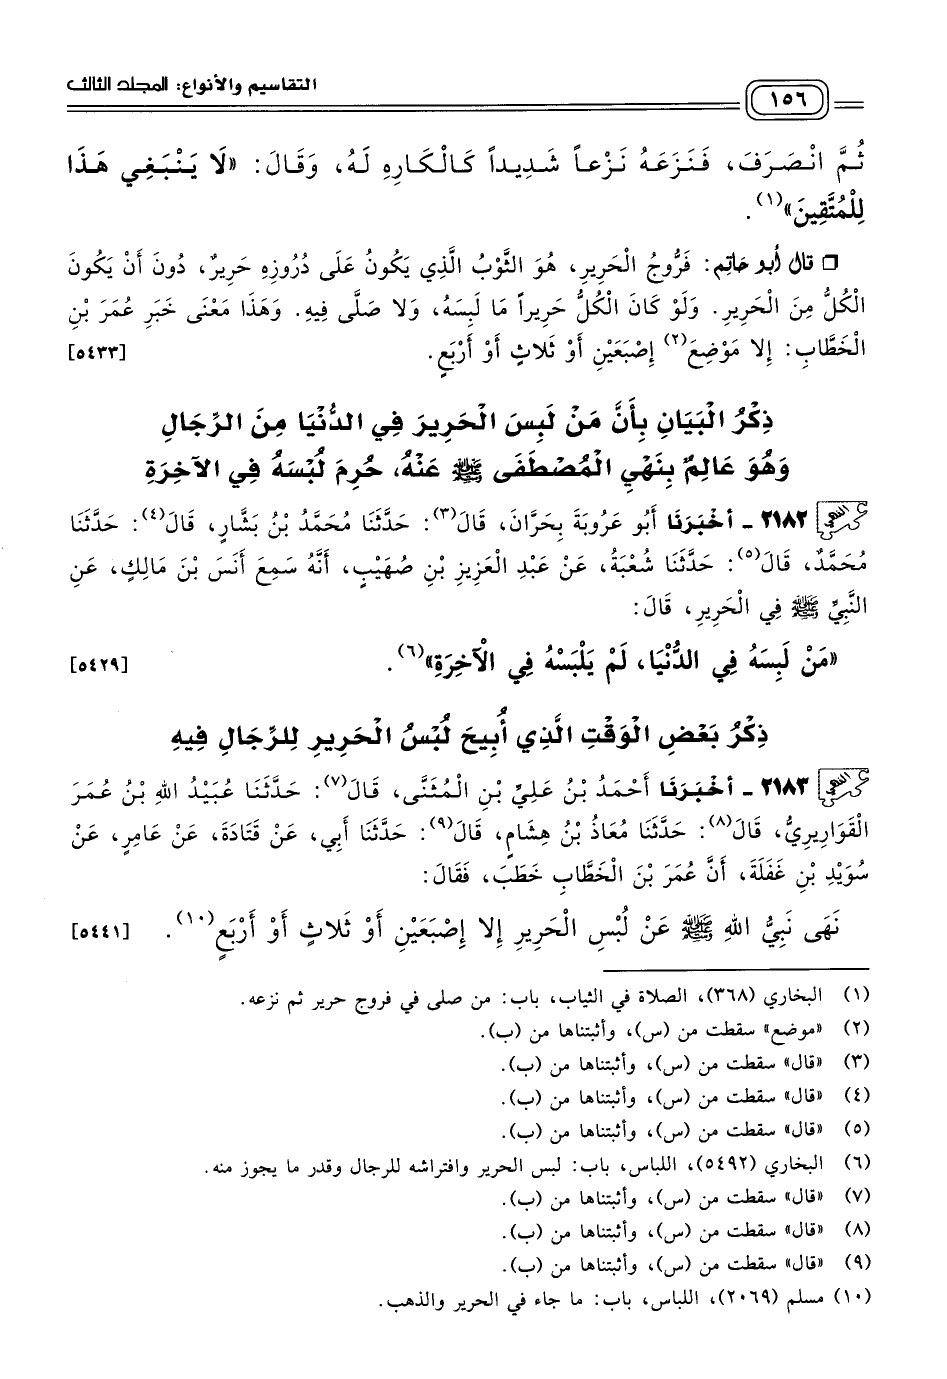 التقاسيم والأنواع: المجلد الثالث
١٥٦
ثُمَّ انْصَرَفَ، فَنَزَعَهُ نَزْعاً شَدِيداً كَالْكَارِهِ لَهُ، وَقَالَ: «لَا يَنْبَغِي هَذَا
لِلْمُتَّقِينَ»(١).
❒ قال أبو حاتم: فَرُّوجُ الْحَرِيرِ، هُوَ الثَّوْبُ الَّذِي يَكُونُ عَلَى دُرُوزِهِ حَرِيرٌ، دُونَ أَنْ يَكُونَ
الْكُلُّ مِنَ الْحَرِيرِ. وَلَوْ كَانَ الْكُلُّ حَرِيراً مَا لَبِسَهُ، وَلا صَلَّى فِيهِ. وَهَذَا مَعْنَى خَبَرِ عُمَرَ بْنِ
الْخَطَّابِ: إِلا مَوْضِعَ(٢) إِصْبَعَيْنِ أَوْ ثَلاثٍ أَوْ أَرْبَعٍ. [٥٤٣٣]
ذِكْرُ الْبَيَانِ بِأَنَّ مَنْ لَبِسَ الْحَرِيرَ فِي الدُّنْيَا مِنَ الرِّجَالِ
وَهُوَ عَالِمٌ بِنَهْيِ الْمُصْطَفَى ﷺ عَنْهُ، حُرِمَ لُبْسَهُ فِي الآخِرَةِ
٢١٨٢ - أَخْبَرَنَا أَبُو عَرُوبَةَ بِحَرَّانَ، قَالَ(٣): حَدَّثَنَا مُحَمَّدُ بْنُ بَشَّارٍ، قَالَ(٤): حَدَّثَنَا
مُحَمَّدٌ، قَالَ(٥): حَدَّثَنَا شُعْبَةُ، عَنْ عَبْدِ الْعَزِيزِ بْنِ صُهَيْبٍ، أَنَّهُ سَمِعَ أَنَسَ بْنَ مَالِكٍ، عَنِ
النَّبِيِّ ﷺ فِي الْحَرِيرِ، قَالَ:
«مَنْ لَبِسَهُ فِي الدُّنْيَا، لَمْ يَلْبَسْهُ فِي الْآخِرَةِ»(٦). [٥٤٢٩]
ذِكْرُ بَعْضِ الْوَقْتِ الَّذِي أُبِيحَ لُبْسُ الْحَرِيرِ لِلرِّجَالِ فِيهِ
٢١٨٣ - أَخْبَرَنَا أَحْمَدُ بْنُ عَلِيِّ بْنِ الْمُثَنَّى، قَالَ(٧): حَدَّثَنَا عُبَيْدُ اللهِ بْنُ عُمَرَ
الْقَوَارِيرِيُّ، قَالَ(٨): حَدَّثَنَا مُعَاذُ بْنُ هِشَامٍ، قَالَ(٩): حَدَّثَنَا أَبِي، عَنْ قَتَادَةَ، عَنْ عَامِرٍ، عَنْ
سُوَيْدِ بْنِ غَفَلَةَ، أَنَّ عُمَرَ بْنَ الْخَطَّابِ خَطَبَ، فَقَالَ:
نَهَى نَبِيُّ اللهِ ﷺ عَنْ لُبْسِ الْحَرِيرِ إِلا إِصْبَعَيْنِ أَوْ ثَلاثٍ أَوْ أَرْبَعٍ(١٠). [٥٤٤١]
(١) البخاري (٣٦٨)، الصلاة في الثياب، باب: من صلى في فروج حرير ثم نزعه.
(٢) «موضع» سقطت من (س)، وأثبتناها من (ب).
(٣) «قال» سقطت من (س)، وأثبتناها من (ب).
(٤) «قال» سقطت من (س)، وأثبتناها من (ب).
(٥) «قال» سقطت من (س)، وأثبتناها من (ب).
(٦) البخاري (٥٤٩٢)، اللباس، باب: لبس الحرير وافتراشه للرجال وقدر ما يجوز منه.
(٧) «قال» سقطت من (س)، وأثبتناها من (ب).
(٨) «قال» سقطت من (س)، وأثبتناها من (ب).
(٩) «قال» سقطت من (س)، وأثبتناها من (ب).
(١٠) مسلم (٢٠٦٩)، اللباس، باب: ما جاء في الحرير والذهب.